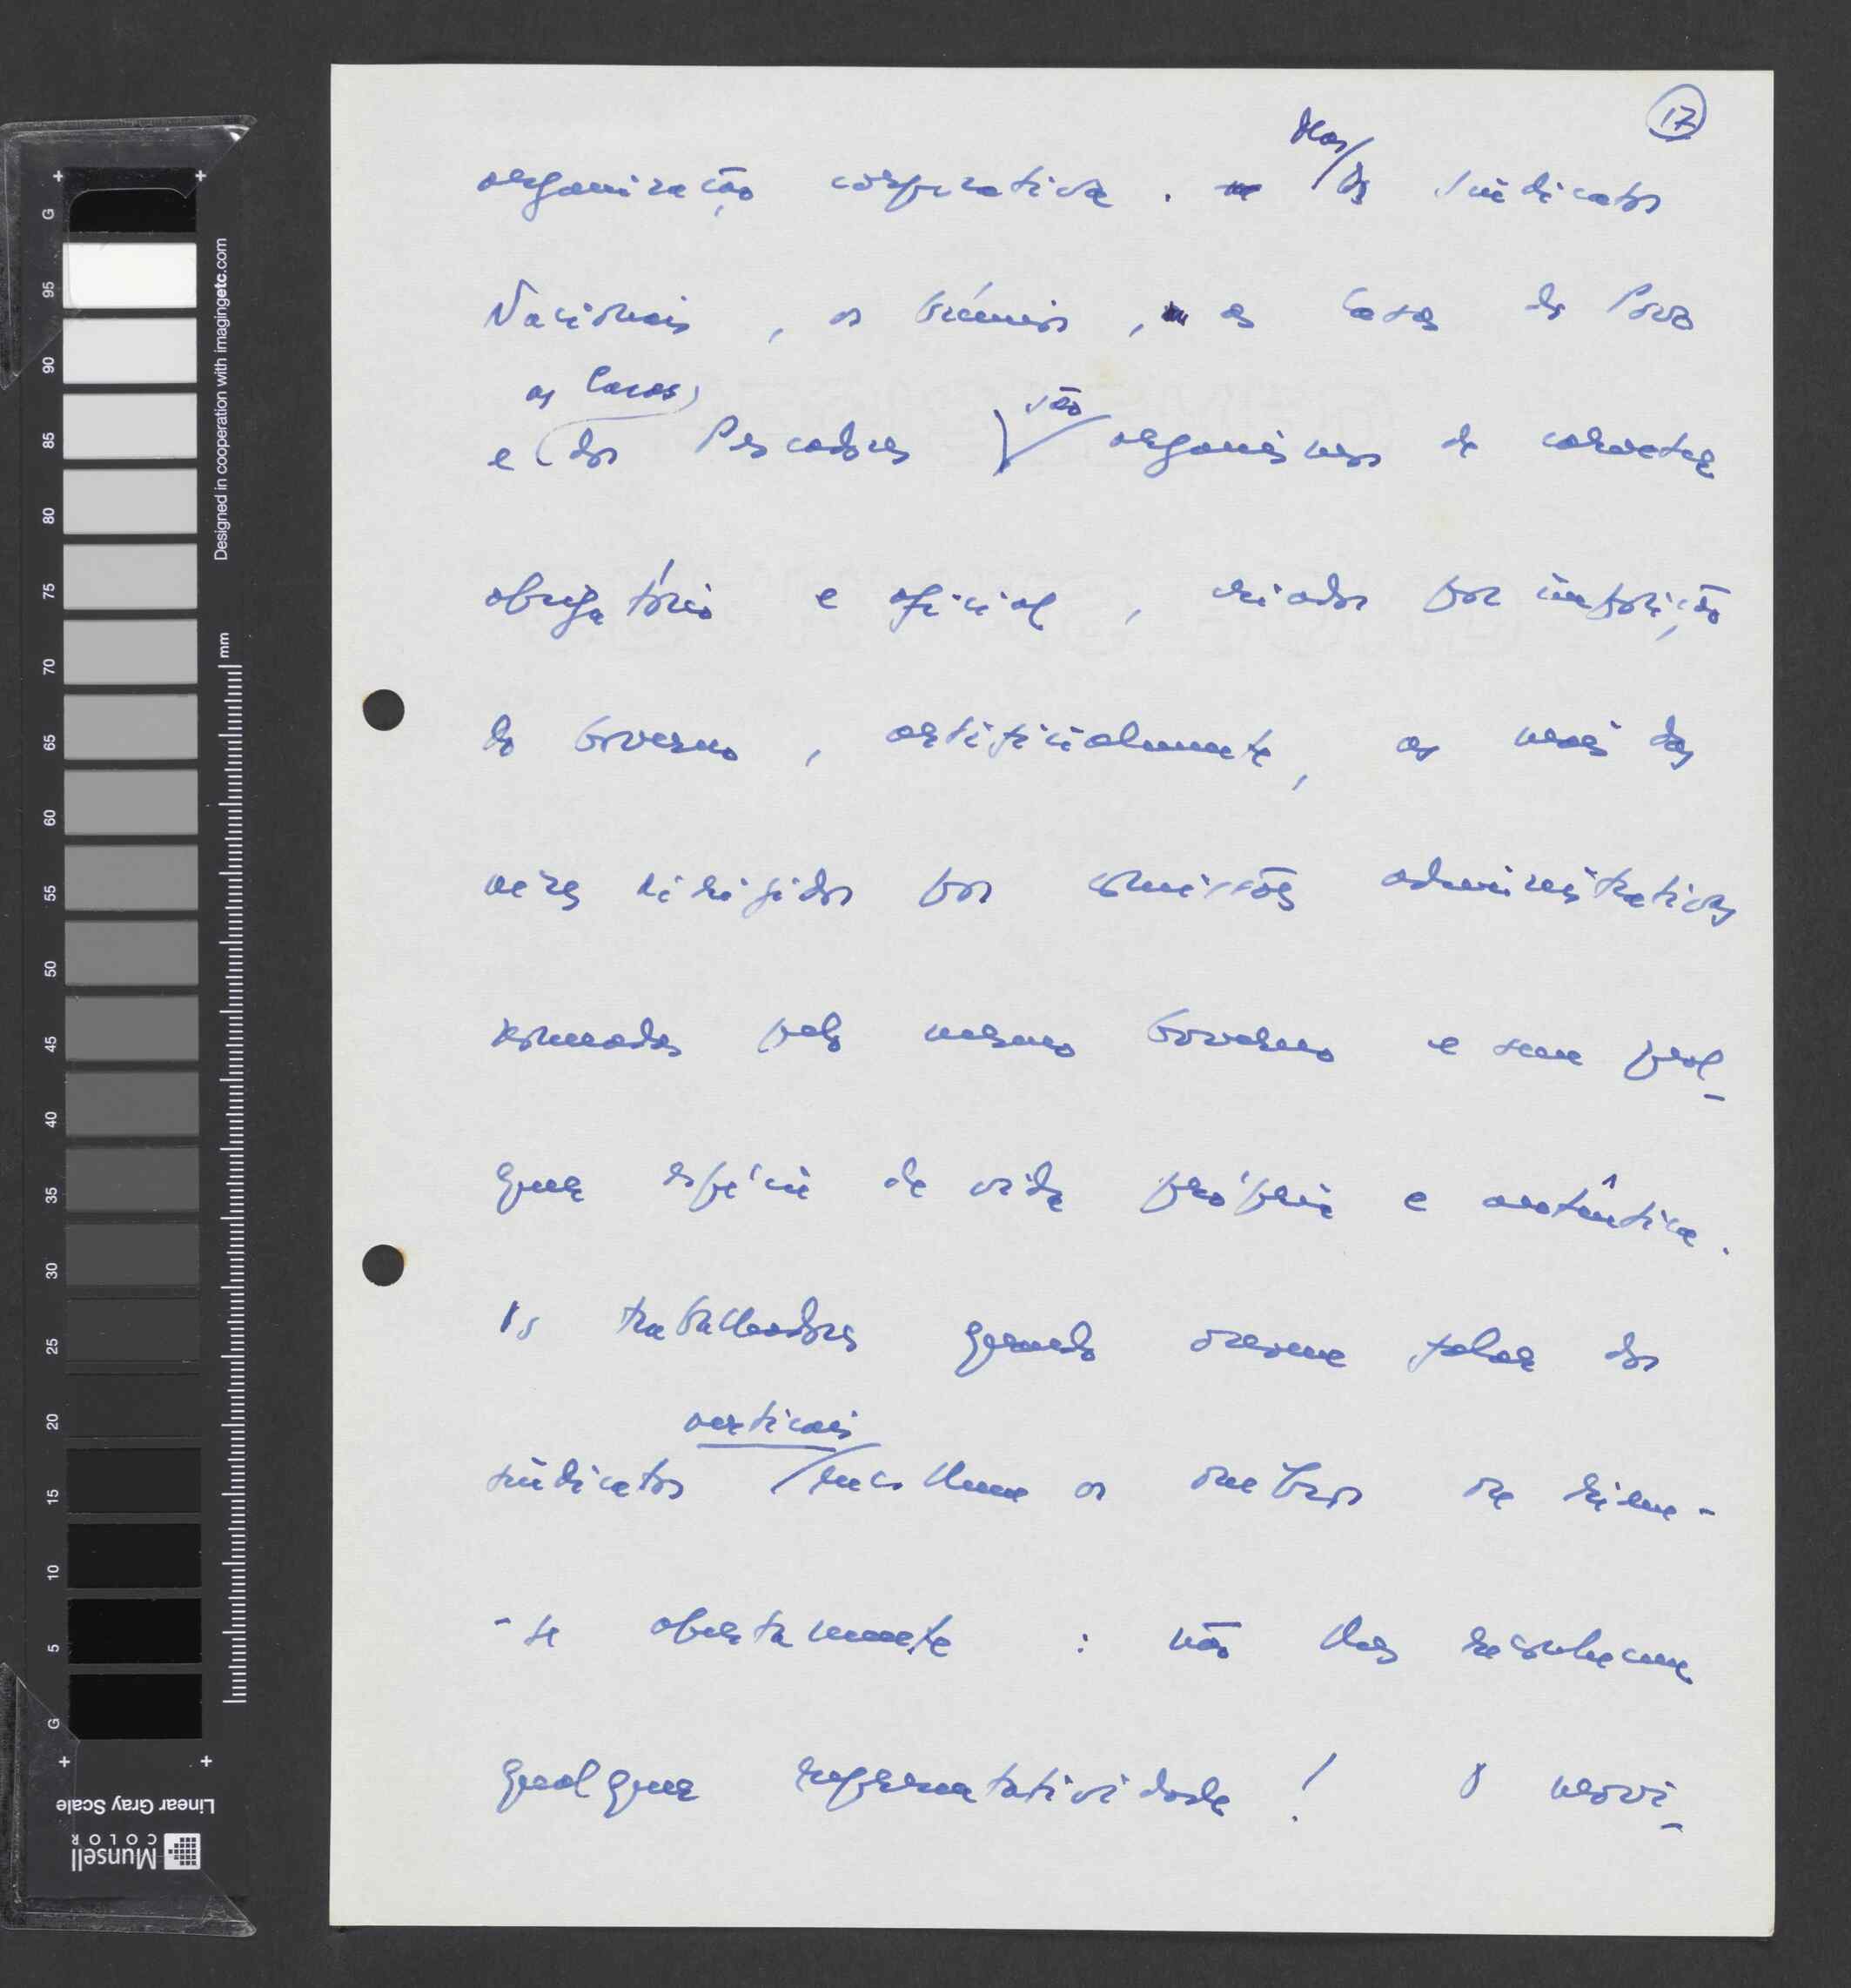 17
organização corporativa. Mas/ Os Sindicatos
Nacionais, os Grémios, as Casas do Povo
e as Casas dos Pescadores são organismos de carácter
obrigatório e oficial, criados por imposição
do Governo, artificialmente, as mais das
vezes dirigidos por comissões administrativas
nomeadas pelo mesmo Governo e sem qual-
quer espécie de vida própria e autêntica.
Os trabalhadores quando ouvem falar dos
sindicatos verticais encolhem os ombros ou riem-
-se abertamente: não lhes reconhecem
qualquer representatividade! O movi-
Designed in cooperation with imagingetc.com
mm
G 95 90 85 80 75 70 65 60 55 50 45 40 35 30 25 20 15 10 5 G
Linear Gray Scale
Munsell
COLOR